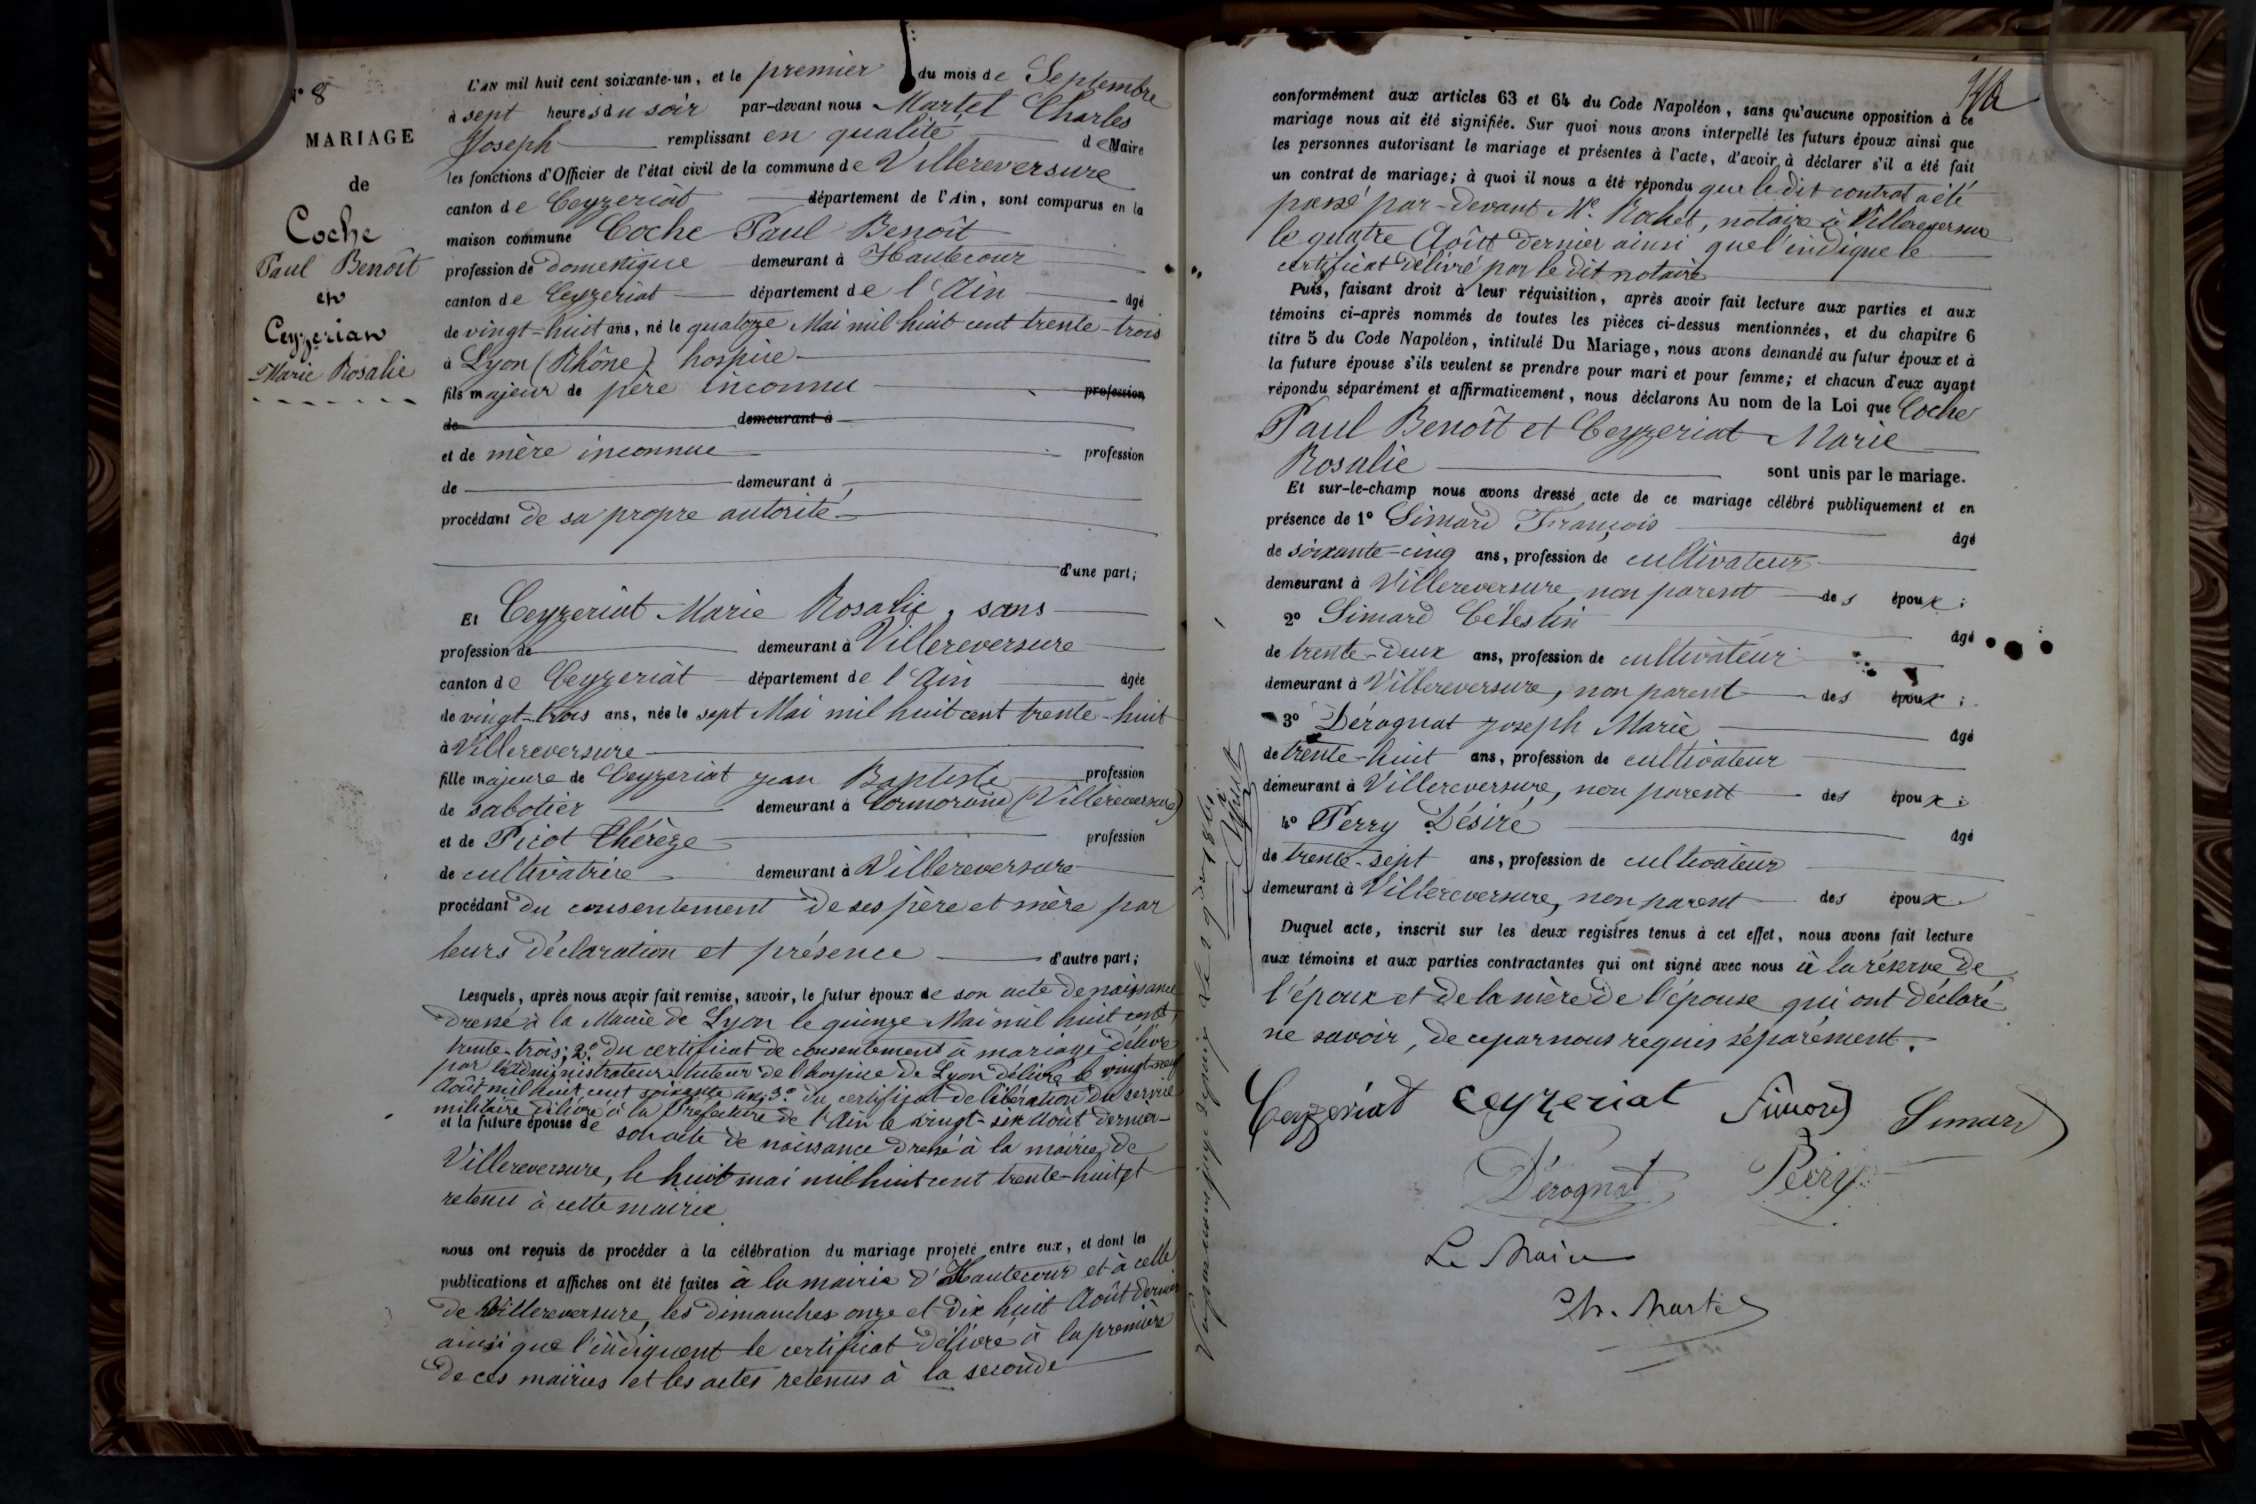 N° 8
MARIAGE
de
Coche
Paul Benoît
et
Ceyzeriat
Marie Rosalie
L'AN mil huit cent soixante-un, et le premier du mois de Septembre
à sept heures du soir par-devant nous Martel Charles
Joseph remplissant en qualité de Maire
les fonctions d'Officier de l'état civil de la commune de Villereversure
canton de Ceyzeriat département de l'Ain, sont comparus en la
maison commune Coche Paul Benoît
profession de domestique demeurant à Hautecour
canton de Ceyzeriat département de l'Ain âgé
de vingt-huit ans, né le quatorze Mai mil huit cent trente-trois
à Lyon (Rhône) hospice
fils majeur de père inconnu profession
de demeurant à
et de mère inconnue profession
de demeurant à
procédant de sa propre autorité
d'une part;
Et Ceyzeriat Marie Rosalie, sans
profession de demeurant à Villereversure
canton de Ceyzeriat département de l'Ain âgée
de vingt-trois ans, née le sept Mai mil huit cent trente-huit
à Villereversure
fille majeure de Ceyzeriat Jean Baptiste profession
de sabotier demeurant à Cormorand (Villereversure)
et de Picot Thérèze profession
de cultivatrice demeurant à Villereversure
procédant du consentement de ses père et mère par
leurs déclaration et présence d'autre part;
Lesquels, après nous avoir fait remise, savoir, le futur époux de son acte de naissance
dressé à la Mairie de Lyon le quinze Mai mil huit cent
trente-trois; 2° du certificat de consentement à mariage délivré
par l'administrateur tuteur de l'hospice de Lyon délivré le vingt-neuf
Août mil huit cent soixante un; 3° du certificat de libération du service
militaire délivré à la Préfecture de l'Ain le vingt-six Août dernier
et la future épouse de son acte de naissance dressé à la mairie de
Villereversure, le huit mai mil huit cent trente-huit et
retenu à cette mairie
nous ont requis de procéder à la célébration du mariage projeté entre eux, et dont les
publications et affiches ont été faites à la mairie d'Hautecour et à celle
de Villereversure, les dimanches onze et dix huit Août dernier
ainsi que l'indiquent le certificat délivré à la première
de ces mairies et les actes retenus à la seconde
conformément aux articles 63 et 64 du Code Napoléon, sans qu'aucune opposition à ce
mariage nous ait été signifiée. Sur quoi nous avons interpellé les futurs époux ainsi que
les personnes autorisant le mariage et présentes à l'acte, d'avoir à déclarer s'il a été fait
un contrat de mariage; à quoi il nous a été répondu que le dit contrat a été
passé par-devant Me. Rochet, notaire à Villereversure
le quatre Août dernier ainsi que l'indique le
certificat délivré par le dit notaire
Puis, faisant droit à leur réquisition, après avoir fait lecture aux parties et aux
témoins ci-après nommés de toutes les pièces ci-dessus mentionnées, et du chapitre 6
titre 5 du Code Napoléon, intitulé Du Mariage, nous avons demandé au futur époux et à
la future épouse s'ils veulent se prendre pour mari et pour femme; et chacun d'eux ayant
répondu séparément et affirmativement, nous déclarons Au nom de la Loi que Coche
Paul Benoît et Ceyzeriat Marie
Rosalie sont unis par le mariage.
Et sur-le-champ nous avons dressé acte de ce mariage célébré publiquement et en
présence de 1° Simard François âgé
de soixante-cinq ans, profession de cultivateur
demeurant à Villereversure, non parent des époux;
2° Simard Célestin âgé
de trente-deux ans, profession de cultivateur
demeurant à Villereversure, non parent des époux;
3° Dérognat Joseph Marie âgé
de trente-huit ans, profession de cultivateur
demeurant à Villereversure, non parent des époux;
4° Perry Désiré âgé
de trente-sept ans, profession de cultivateur
demeurant à Villereversure, non parent des époux.
Duquel acte, inscrit sur les deux registres tenus à cet effet, nous avons fait lecture
aux témoins et aux parties contractantes qui ont signé avec nous à la réserve de
l'époux et de la mère de l'épouse qui ont déclaré
ne savoir, de ce par nous requis séparément.
Ceyzeriat Ceyzeriat Simard Simard
Dérognat Perry
Le Maire
Ch. Martel